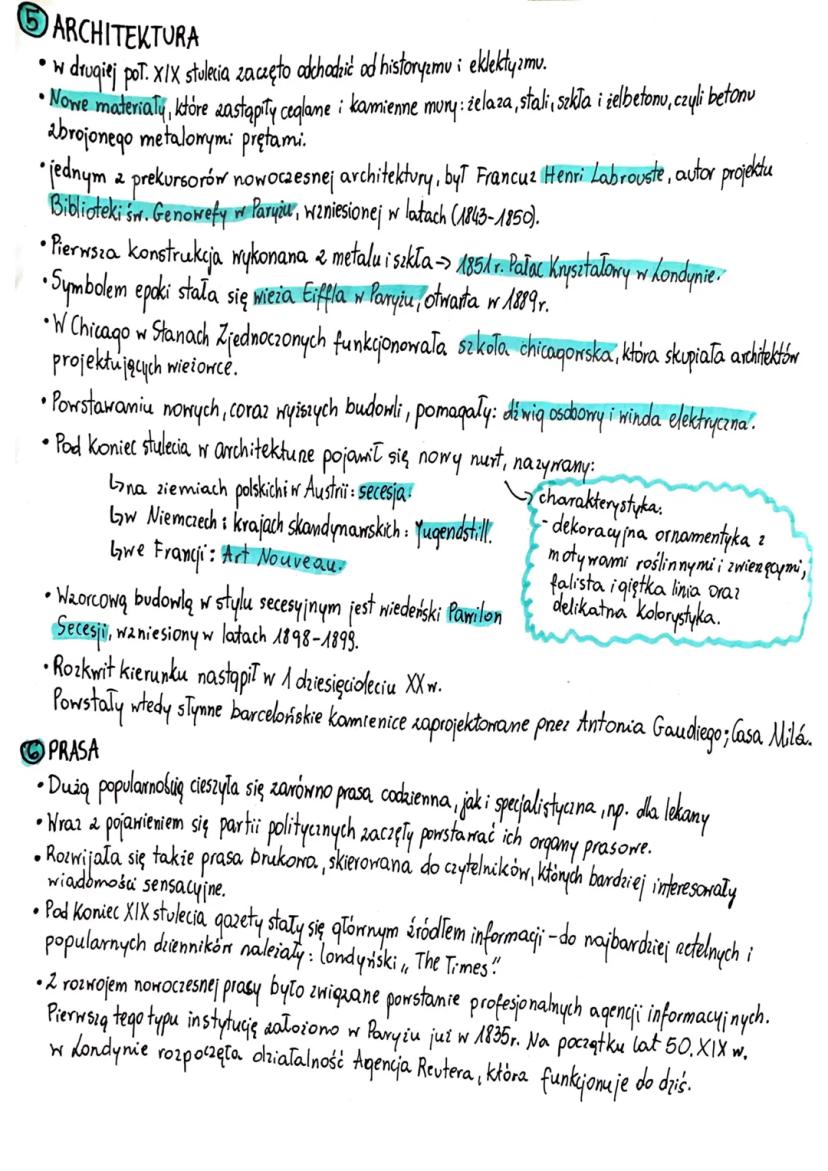 5 ARCHITEKTURA
• w drugiej poł. XIX stulecia zaczęto odchodzić od historyzmu i eklektyzmu.
• Nowe materiały, które zastąpiły ceglane i kamienne mury: żelaza, stali, szkła i żelbetonu, czyli betonu
zbrojonego metalowymi prętami.
• jednym z prekursorów nowoczesnej architektury, był Francuz Henri Labrouste, autor projektu
Biblioteki św. Genowefy w Paryżu, wzniesionej w latach (1843-1850).
• Pierwsza konstrukcja wykonana z metalu i szkła → 1851 r. Pałac Kryształowy w Londynie.
• Symbolem epoki stała się wieża Eiffla w Paryżu, otwarta w 1889r.
• W Chicago w Stanach Zjednoczonych funkcjonowała szkoła chicagowska, która skupiała architektów
projektujących wieżowce.
• Powstawaniu nowych, coraz wyższych budowli, pomagały: dźwig osobowy i winda elektryczna.
• Pod koniec stulecia w architekturze pojawił się nowy nurt, nazywany:
↳ na ziemiach polskich i w Austrii: secesja.
↳ w Niemczech i krajach skandynawskich: Jugendstill.
↳ we Francji: Art Nouveau.
charakterystyka:
- dekoracyjna ornamentyka z
motywami roślinnymi i zwierzęcymi,
falista i giętka linia oraz
delikatna kolorystyka.
• Wzorcową budowlą w stylu secesyjnym jest wiedeński Pawilon
Secesji, wzniesiony w latach 1898-1899.
• Rozkwit kierunku nastąpił w 1 dziesięcioleciu XX w.
Powstały wtedy słynne barcelońskie kamienice zaprojektowane przez Antonia Gaudiego; Casa Milá.
6 PRASA
• Dużą popularnością cieszyła się zarówno prasa codzienna, jak i specjalistyczna, np. dla lekarzy
• Wraz z pojawieniem się partii politycznych zaczęły powstawać ich organy prasowe.
• Rozwijała się także prasa brukowa, skierowana do czytelników, których bardziej interesowały
wiadomości sensacyjne.
• Pod koniec XIX stulecia gazety stały się głównym źródłem informacji - do najbardziej rzetelnych i
popularnych dzienników należały: londyński „The Times".
• Z rozwojem nowoczesnej prasy było związane powstanie profesjonalnych agencji informacyjnych.
Pierwszą tego typu instytucję założono w Paryżu już w 1835r. Na początku lat 50. XIX w.
w Londynie rozpoczęła działalność Agencja Reutera, która funkcjonuje do dziś.